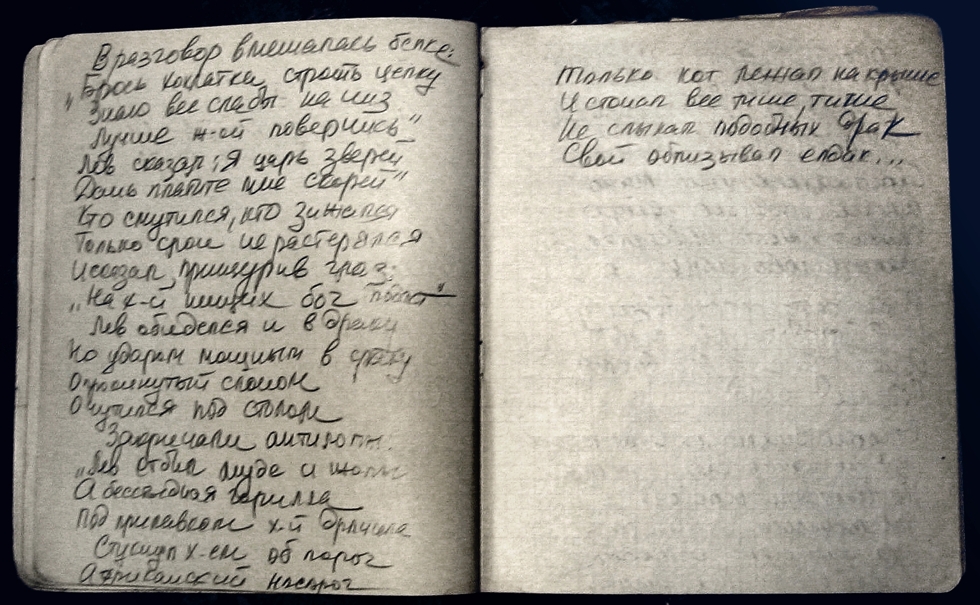 В разговор вмешалась белка:
"Брось кошатка, строить целку
Знаю все слабы на низ
Лучше ж-ой повернись"
Лев сказал: "Я царь зверей
Дань платите мне скорей"
Кто смутился, кто зажался
Только слон не растерялся
И сказал, прищурив глаз:
"На х-й нищих бог подаст"
Лев обиделся и в драку
Но ударом мощным в сраку
Опрокинутый слоном
Очутился под столом
Закричали антилопы
"Лев отбил муде и жопы
А бессандная горилла
Под прилавком х-й дрочила
Стукнул х-ем об порог
Африканский носорог
Только кот лежал на крыше
И стонал все тише, тише
Не слыхал подобных драк
Свой облизывал елдак...